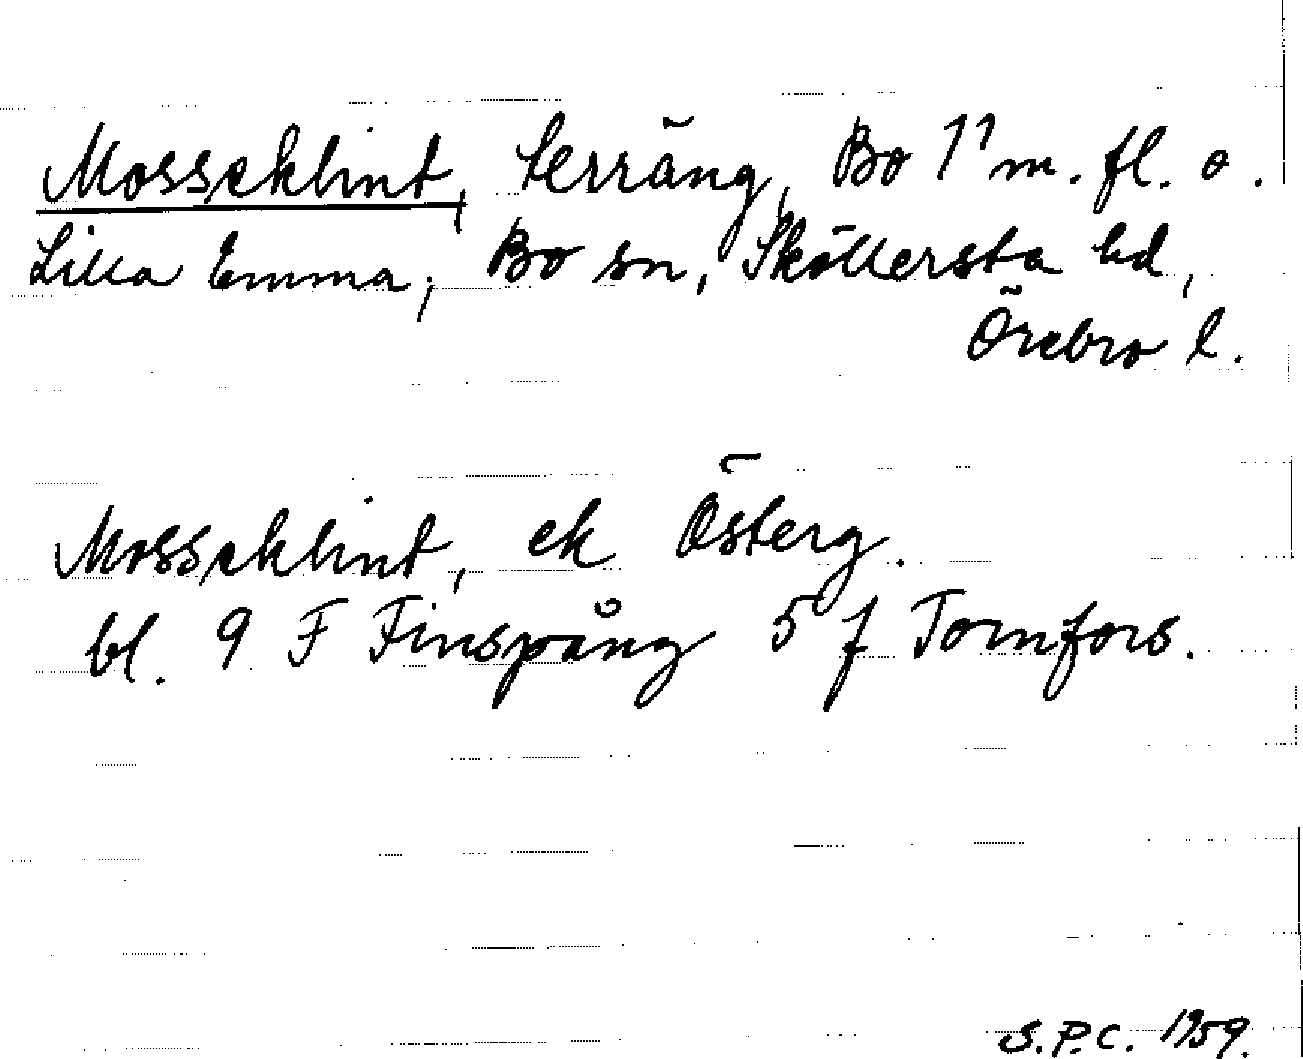 Mosseklint, terräng, Bo 1¹ m. fl. o.
Lilla Emma; Bo sn, Sköllersta hd,
Örebro l.
Mosseklint, ek Österg.
bl. 9 F Finspång 5 f Tornfors.
S.P.C. 1959.